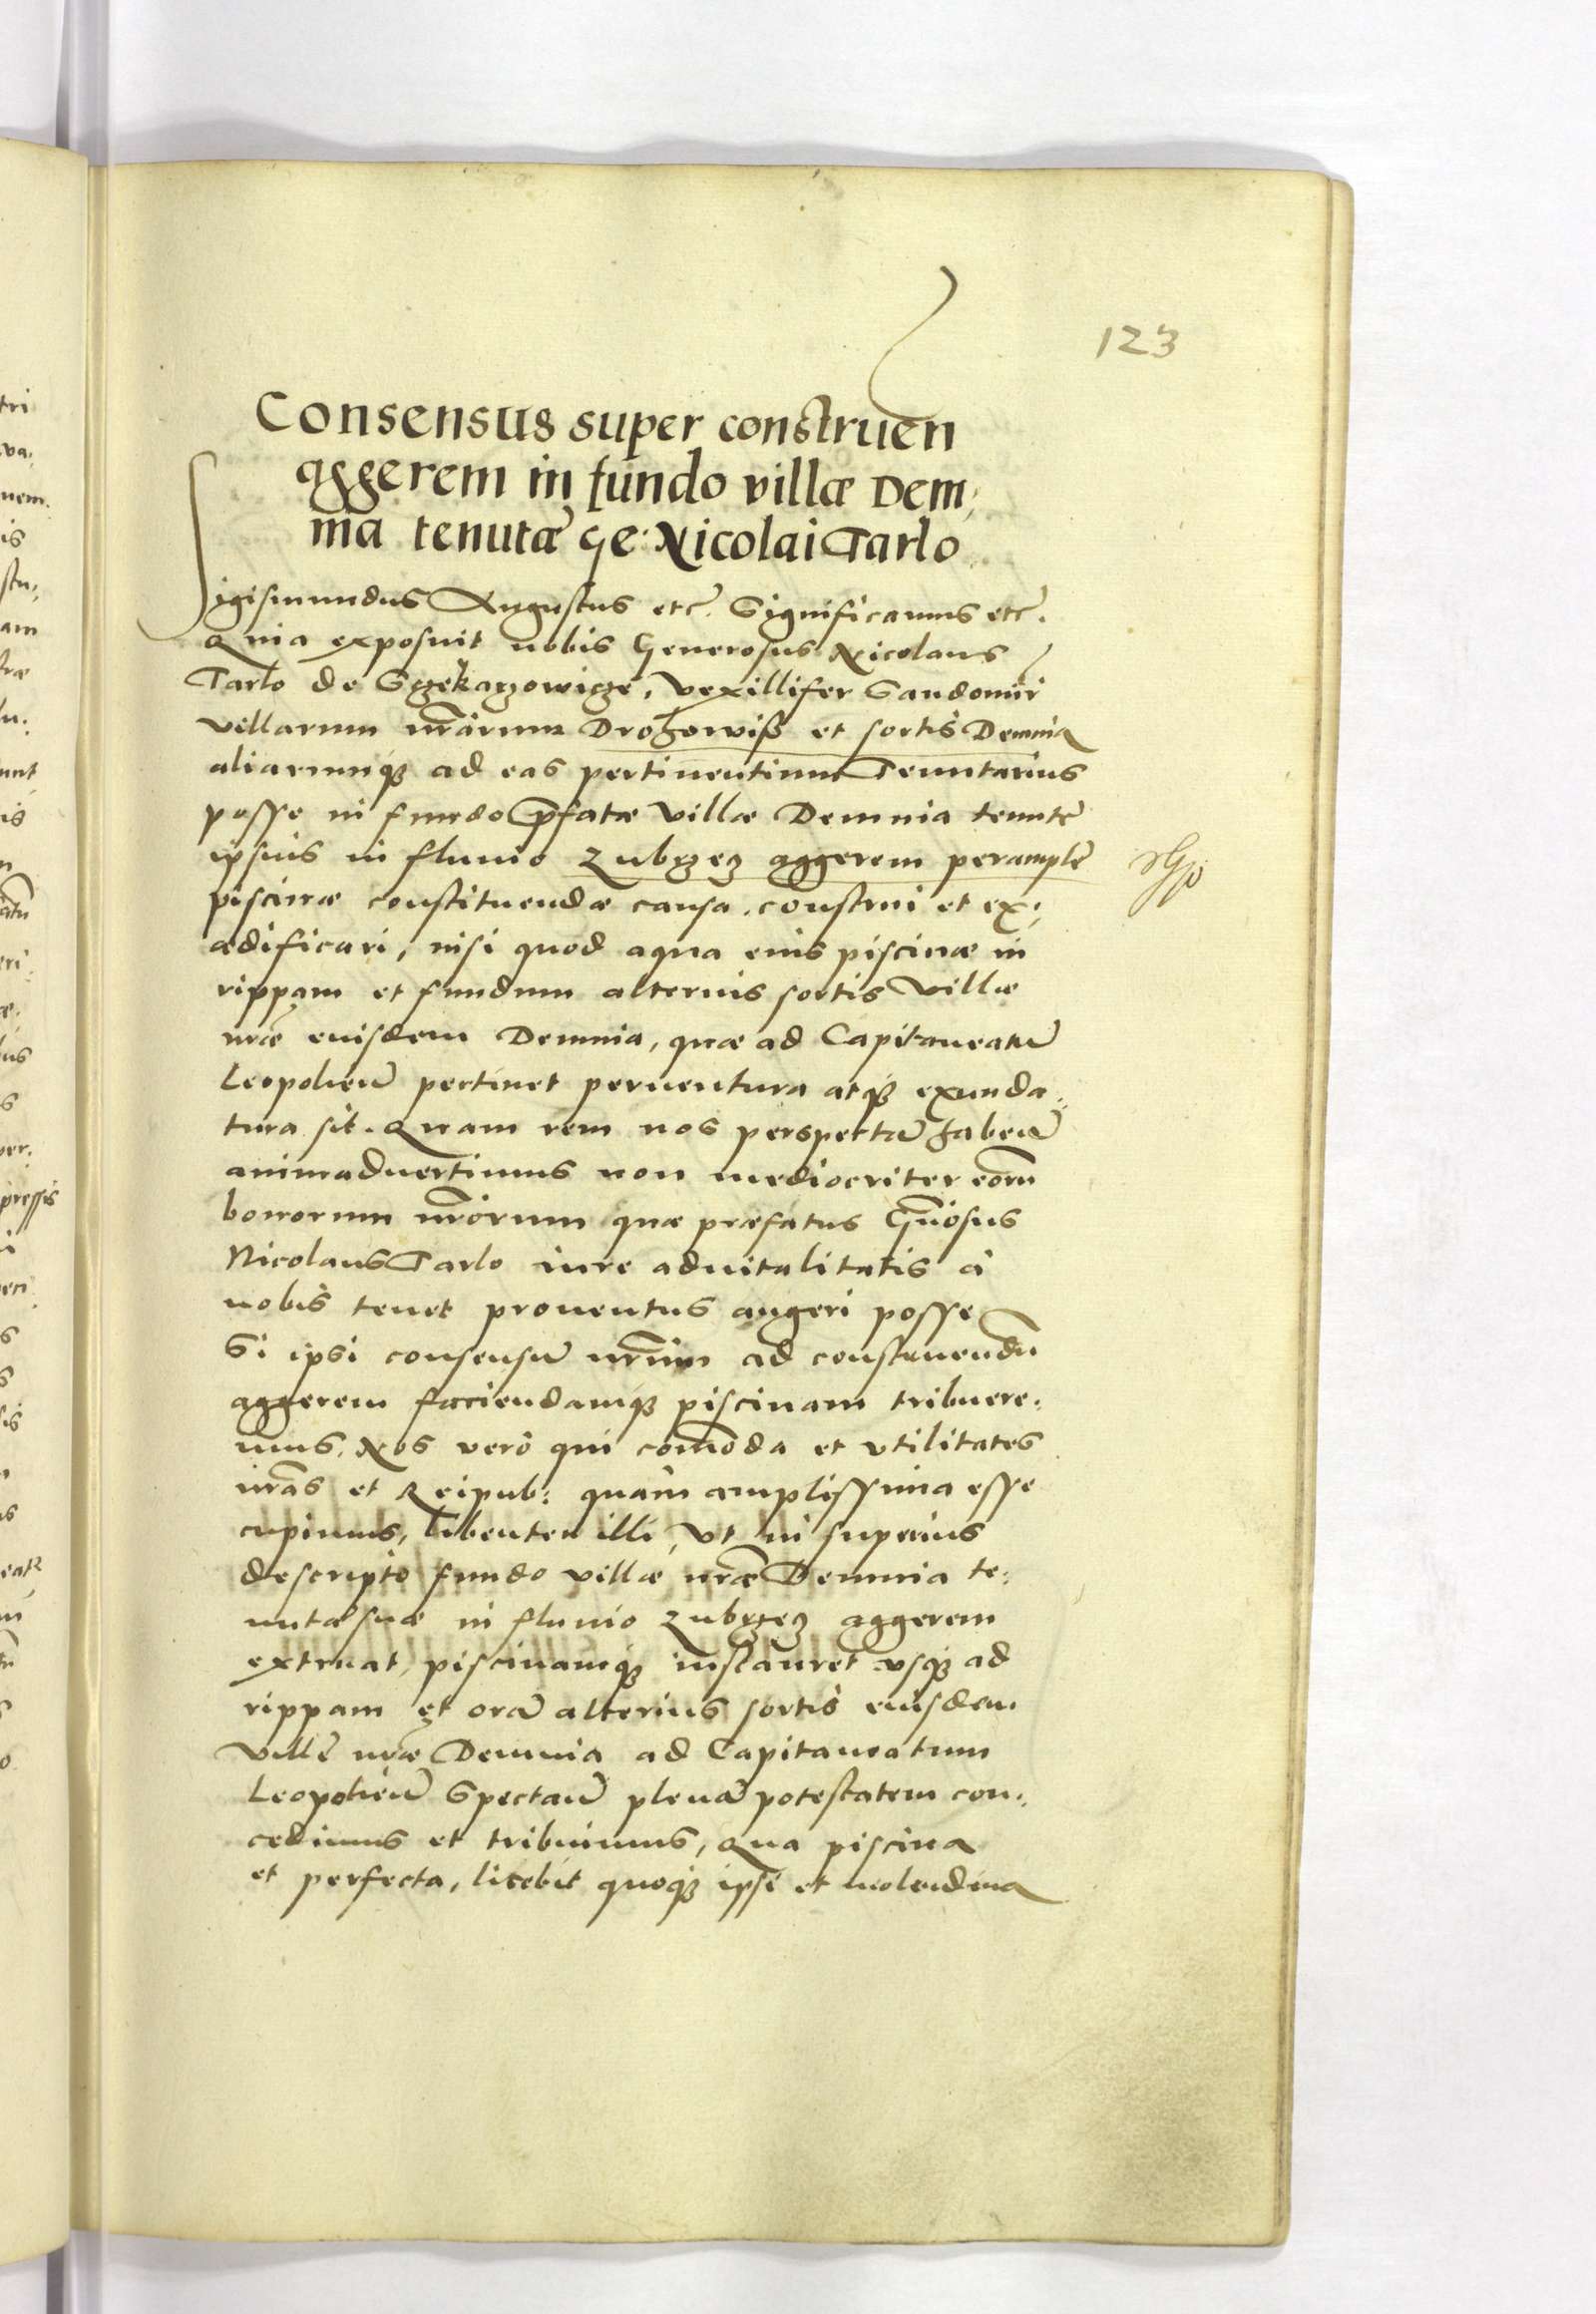 123
Consensus super construen
aggerem in fundo villæ Dem,
nia tenutæ Ge: Nicolai Tarlo
Sigismundus Augustus etc. Significamus etc.
Quia exposuit nobis Generosus Nicolaus
Tarlo de Sczekarzowicze, Vexillifer Sandomir
villarum nrarum Drohowiß et sortis Demnia
aliarumq3 ad eas pertinentium Tenutarius
posse in fundo pfatæ villæ Demnia tenute
ipsius in fluvio Zubrzęz aggerem perample
piscinæ constituendæ causa, construi et ex,
ædificari, nisi quod aqua eius piscinæ in
rippam et fundum alterius sortis Villæ
nræ eiusdem Demnia, quæ ad Capitaneatu
Leopolien pertinet perventura atq3 exunda,
tura sit. Quam rem nos perspecta haben
animadvertimus non mediocriter eoru
bonorum nrorum quæ præfatus Gnosus
Nicolaus Tarlo iure advitalitatis à
nobis tenet proventus augeri posse
Si ipsi consensu nrum ad construendu
aggerem faciendamq3 piscinam tribuere,
mus. Nos verò qui comoda et utilitates
nras et Reipub: quàm amplissima esse
cupimus, libenter illi, ut in superius
descripto fundo villæ nræ Demnia te,
nutæ suæ in fluvio Zubrzęz aggerem
extruat, piscinamq3 instauret usq3 ad
rippam et ora alterius sortis eiusdem
Ville nræ Demnia ad Capitaneatum
Leopolien Spectan plena potestatem con,
cedimus et tribuimus, Qua piscina
et perfecta, licebit quoq3 ipsi et molendina